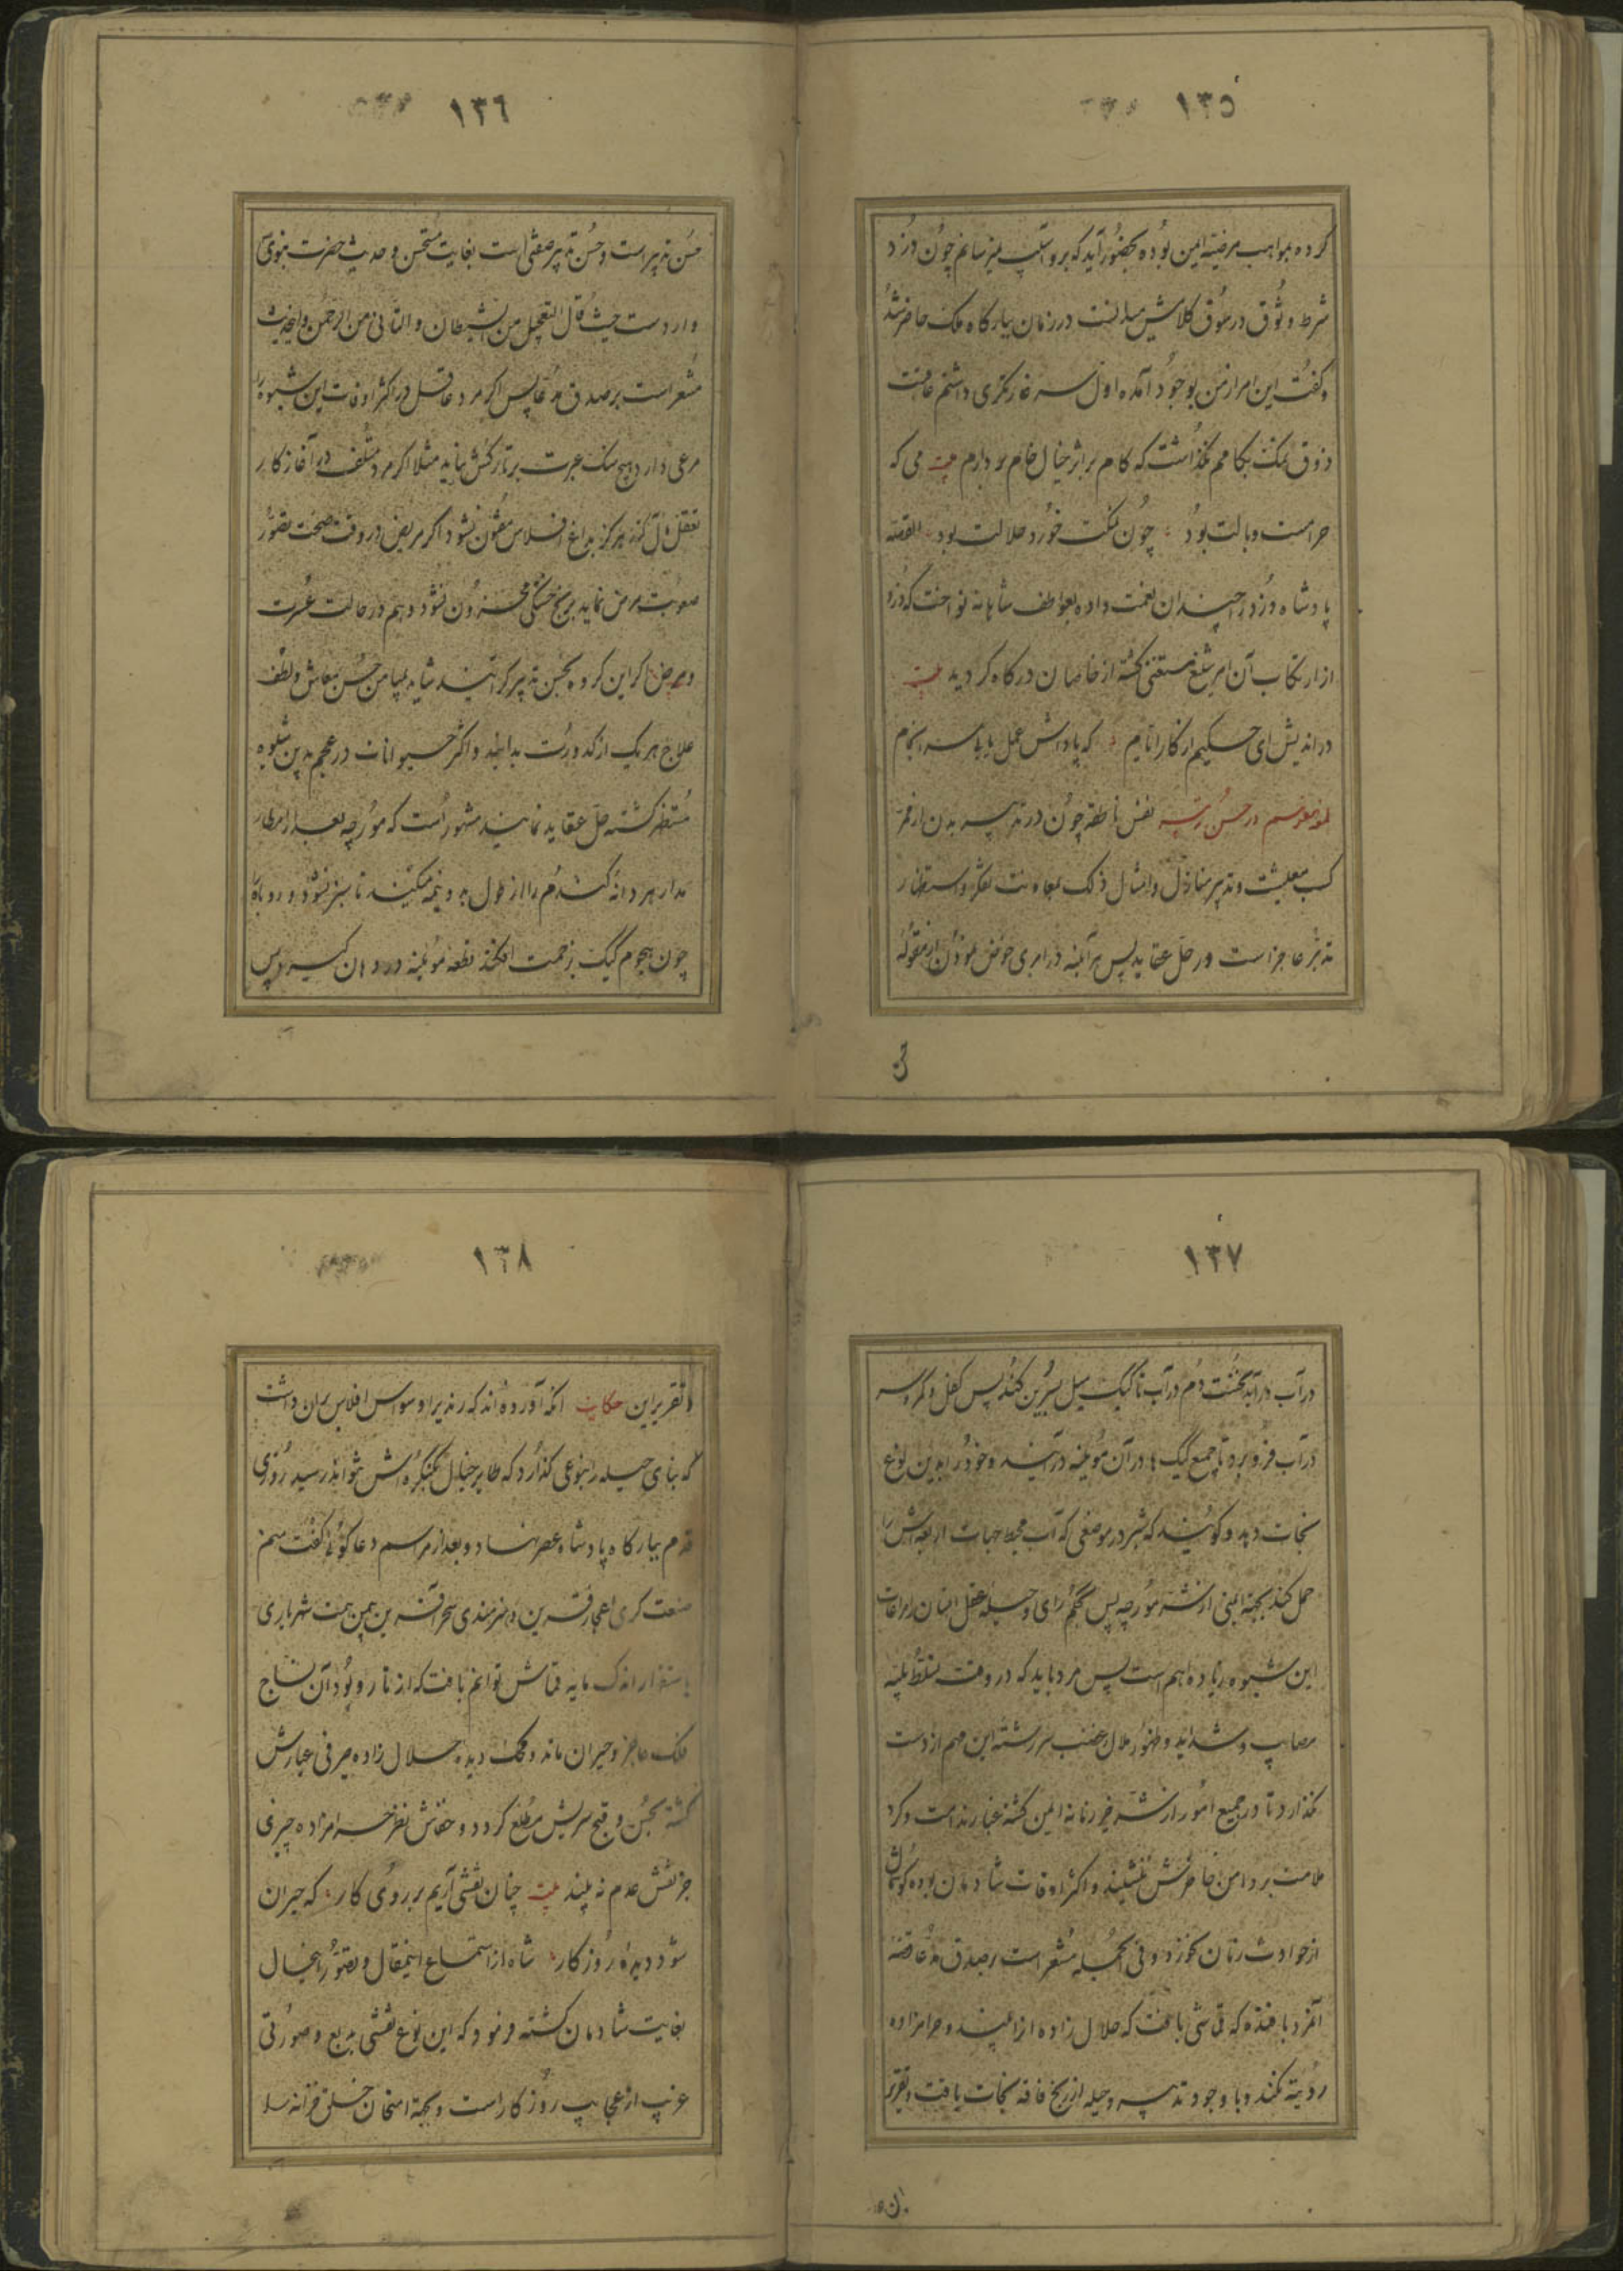 ١٣٥
کرده بمواهب مرضیه ایمن بوده بحضور آید که برو آسیب نیرسانم چون دزد
شرط وثوق در سوق کلامش میدانست در زمان ببارگاه ملک حاضر شد
و گفت این امر از من بوجود آمده اول سر غارتگری داشتم عاقبت
ذوق نمک بکامم نگذاشت که کام بر اثر خیال خام بردارم بیت می که
حرامست وبالت بود چون نمکت خورد حلالت بود القصه
پادشاه دزد را چندان نعمت داده بعواطف شاهانه نواخت که دزد
از ارتکاب آن امر شنیع مستغنی گشته از خاصان درگاه گردید بیت
در اندیش ای حکیم از کار ایام که پاداش عمل یابی سرانجام
در حسن نفس ناطقه چون در تدبیر بدن از
کسب معیشت و تدبیر منازل و امثال ذلک بمعاونت تفکر و استظهار
تدبر عاجز است در حل عقاید پس هر آینه در امری خوض نمودن از مقوله
١٣٦
حسن تدبیر است و حسن تدبیر صفتی است بغایت مستحسن و حدیث حضرت نبوی
واردست حیث قال التعجیل من الشیطان و التانی من الرحمن و این حدیث
مشعر است بر صدق مدعا پس اگر مرد عاقل در اکثر اوقات این شیوه را
مرعی دارد هیچ سنگ عبرت بر تارکش نیاید مثلا اگر مرد متلف در آغاز کار
تعقل مآل کند هرگز بداغ افلاس مفتون نشود اگر مریض در وقت صحت تصور
صعوبت مرض نماید برنج خستگی محزون نشود و هم در حالت عسرت
و مرض اگر این گروه بحسن تدبیر گرایند شاید بمیامن حسن معاش و لطف
علاج هر یک از کدورت بدایند و اکثر حیوانات در عجم بدین شیوه
مستظهر گشته حل عقاید نمایند مشهور است که مورچه بعد از امطار
مدار هر دانه گندم را از طول دو نیمه میکند تا سبز نشود و روباه
چون هجوم کیک بزحمت افکند قطعه موئینه در دهان گیرد پس
١٣٧
در آب درآید نخست دم در آب تا کیک میل سرین کند پس کفل و کمر و سر
در آب فرو برد تا جمع کیک ها در آن موئینه درآیند و خود را بدین نوع
نجات دهد و گویند که شبر در موضعی که آب محیط جهات اربعه اش را
حمل کند بجهة ایمنی از شر مورچه پس بحکم رای و حیله عقل انسان را مراعات
این شیوه زیاده اهم است پس مرد باید که در وقت تسلط بلیه
مصایب و شداید و ظهور ملال و غضب سر رشته این مهم از دست
نگذارد تا در جمیع امور از شر زمانه ایمن گشته غبار ندامت و گرد
ملامت بر دامن خاطرش ننشیند و اکثر اوقات شادمان بوده گوشمال
از حوادث زمان نخورد و فی الجمله مشعر است بر صدق مدعا قصه
آنمرد بافنده که قماشی بافت که حلال زاده انرا بیند و حرامزاده
رؤیته نکند و با وجود تدبیر و حیله از رنج فاقه نجات یافت و تقریر
١٣٨
و تقریر این حکایت انکه آورده اند که رندی را وسواس افلاس بران داشت
که بنای حیله را بنوعی گذارد که طایر خیال بکنگره اش نتواند رسید روزی
قدم ببارگاه پادشاه عصر نهاد و بعد از مراسم دعا گوئی گفت منم
صنعت گری اعجاز قرین و هنرمندی سحر آفرین بیمن همت شهریاری
باستقرار اندک مایه قماشی توانم بافت که از تار و پود آن نساج
فلک عاجز و حیران ماند و محک دیده حلال زاده صرفی عیارش
گشته بحسن و قبح سریش مطلع گردد و خفاش نظر حرامزاده چیزی
جز نقش عدم نه بیند بیت چنان نقشی آریم بر روی کار که حیران
شود دیده روزگار شاه از استماع اینمقال و تصور اینخیال
بغایت شادمان گشته فرمود که این نوع نقشی بدیع و صورتی
غریب از عجایب روزگار است و بجهة امتحان خلق خزانه